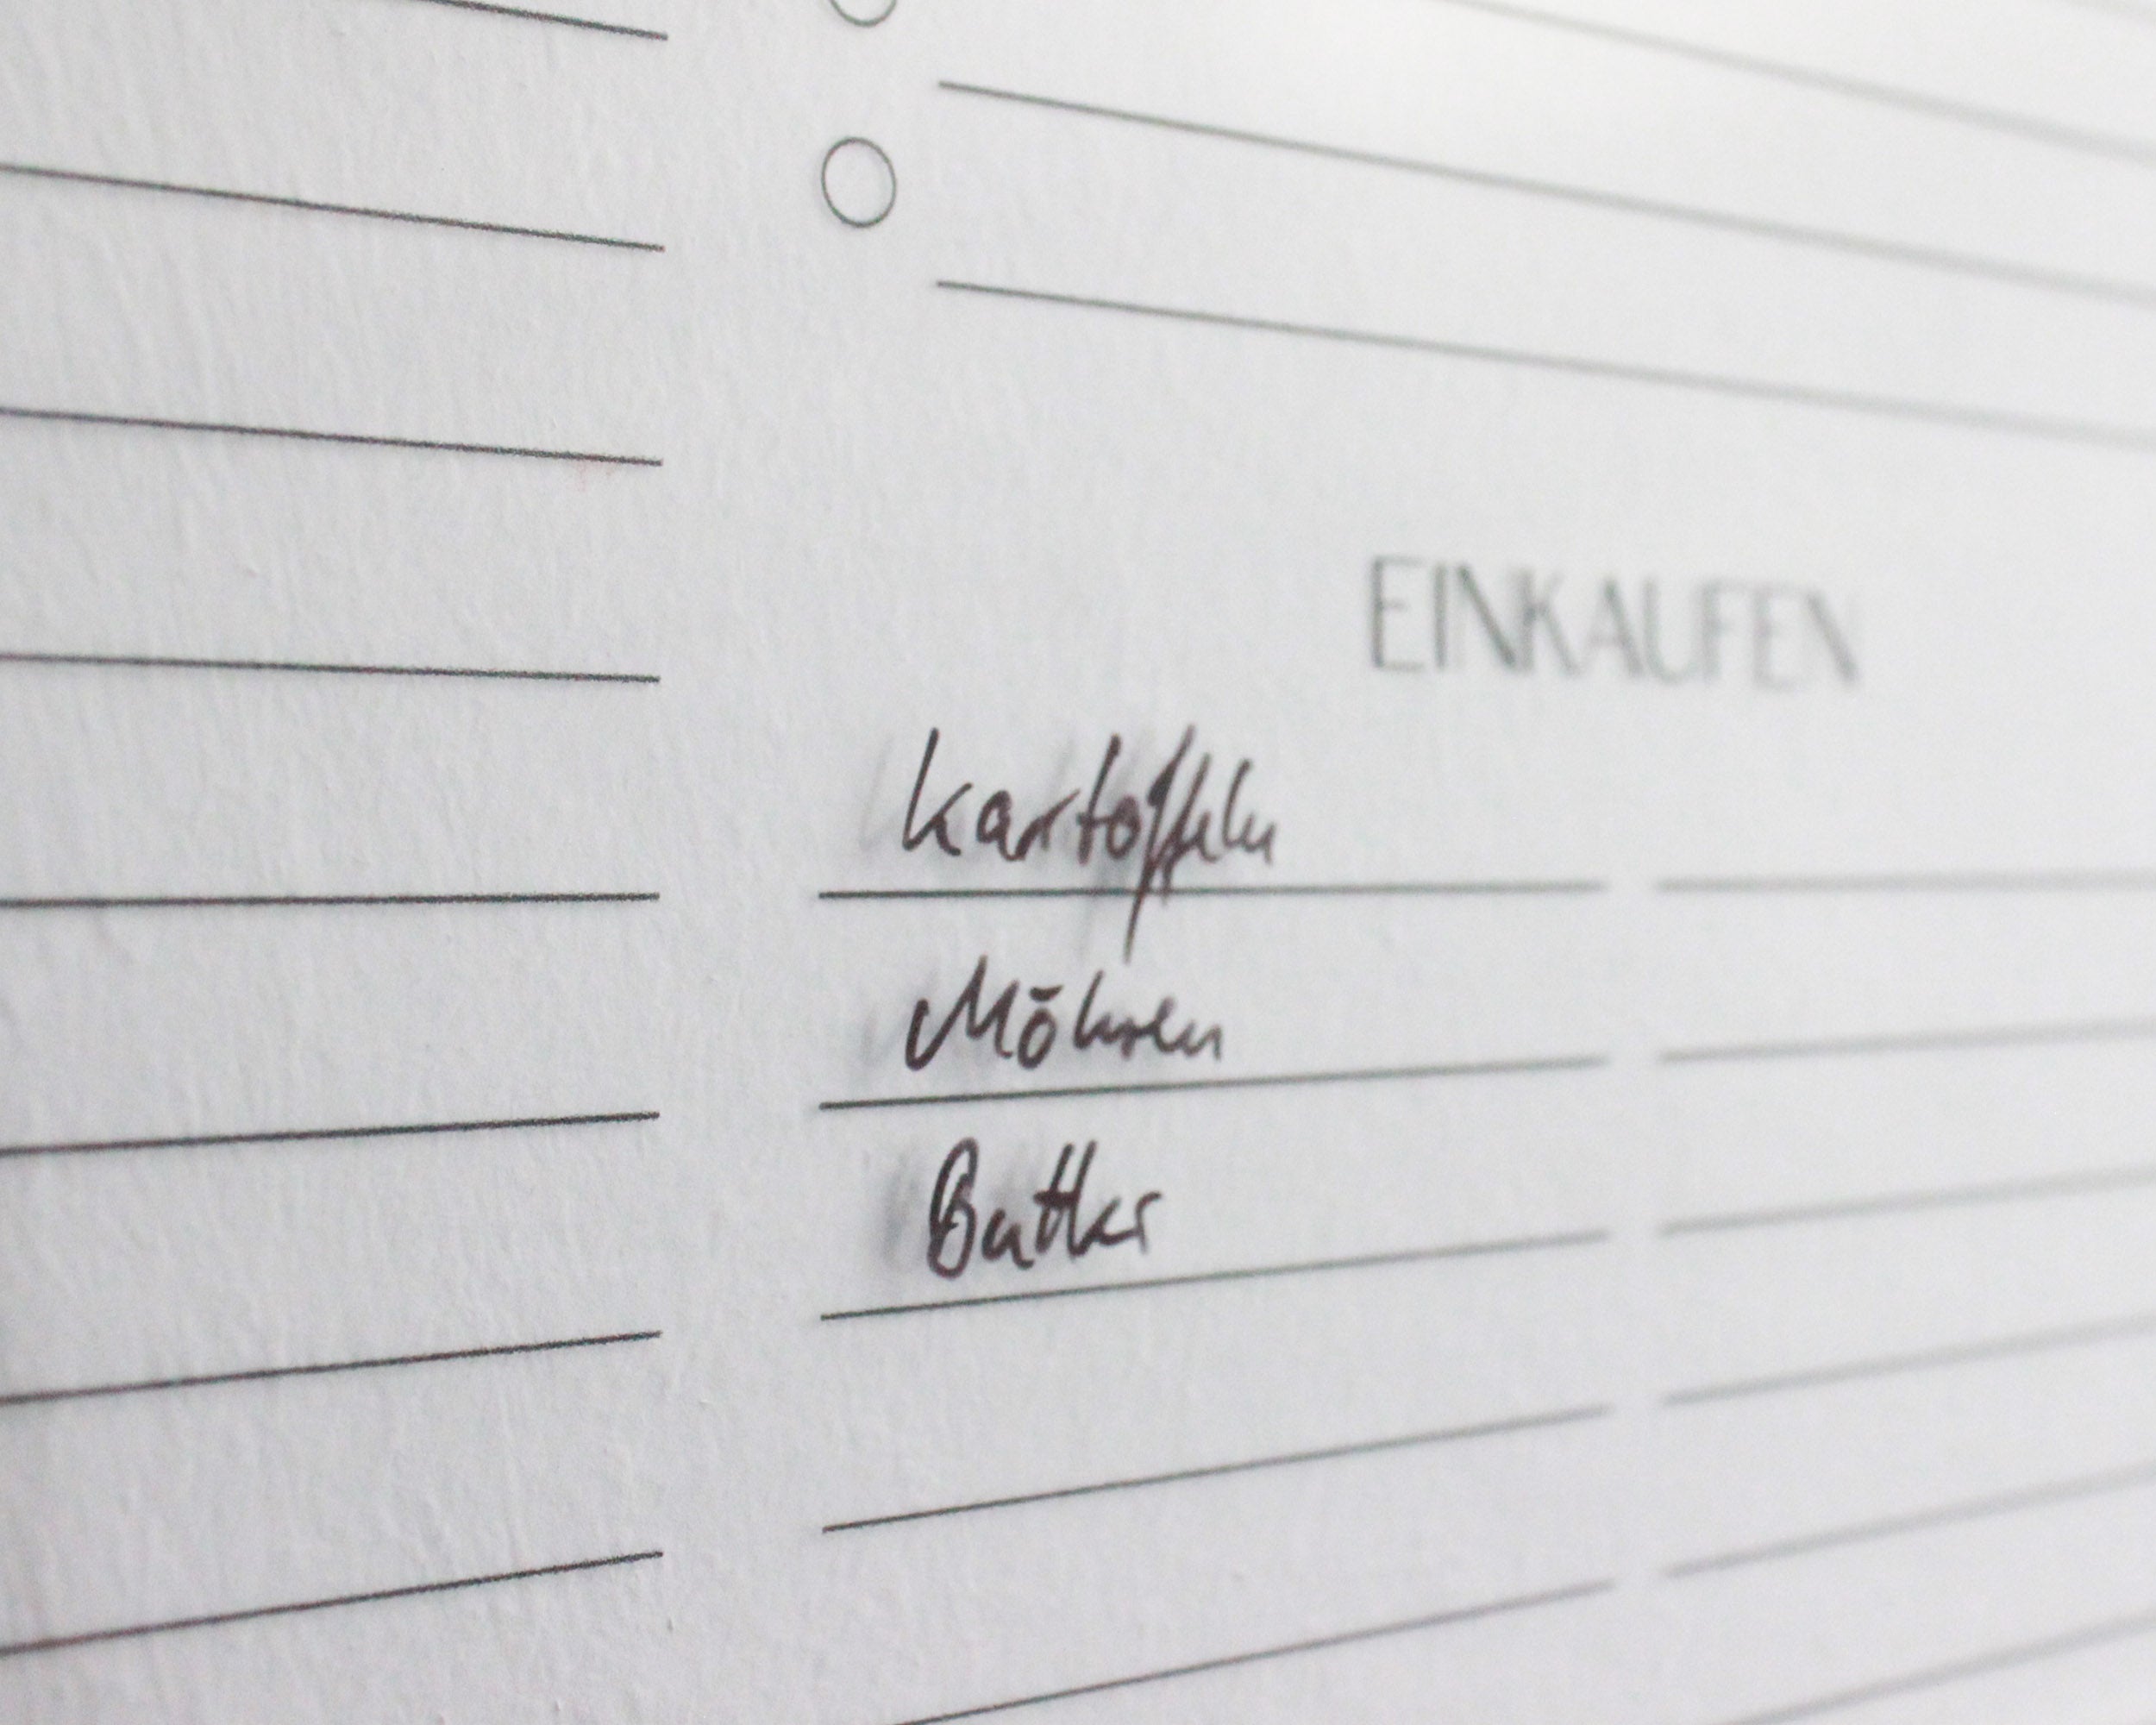 EINKAUFEN
Kartoffeln
Möhren
Butter